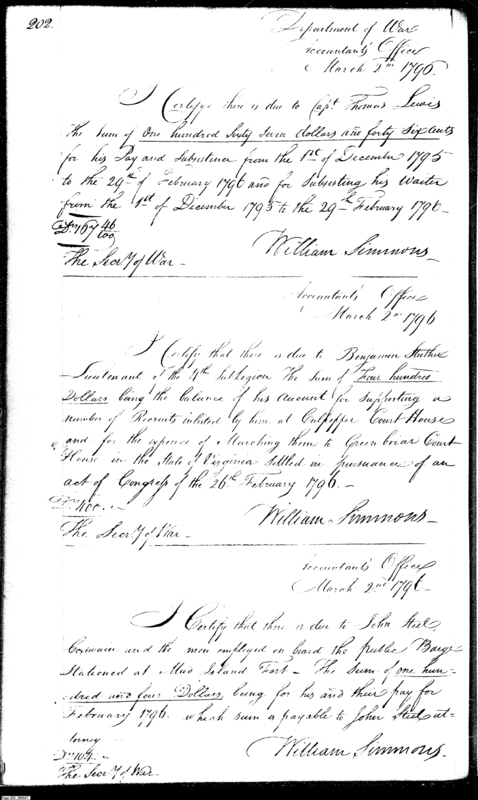 202.
Department of War
Accountants Office
March 2nd 1796.
I Certify there is due to Capt. Thomas Lewis
The sum of One hundred Sixty Seven dollars and forty Six cents
for his Pay and Subsistence from the 1st of December 1795
to the 29th of February 1796 and for Subsisting his Waiter
from the 1st of December 1795 to the 29th February 1796 -
Drs 167 46/100
William Simmons -
The Secry of War -
Accountants Office
March 2nd 1796
I Certify that there is due to Benjamin
Lieutenant of the 4th Sub Legion The Sum of Four hundred
Dollars being the balance of his Account for Supporting a
number of Recruits inlisted by him at Culpepper Court House
and for the expence of Marching them to Greenbriar Court
House in the State of Virginia Settled in pursuance of an
act of Congress of the 26th February 1796. -
Drs 400. -
William Simmons -
The Secry of War -
Accountants Office
March 2nd 1796 -
I Certify that there is due to John Steel
Coxswain and the men employed on board the public Barge
Stationed at Mud Island Fort - The Sum of one hun-
dred and four Dollars, being for his and their pay for
February 1796. which sum is payable to John Steel at-
torney
Drs 104. -
William Simmons -
The Secry of War.